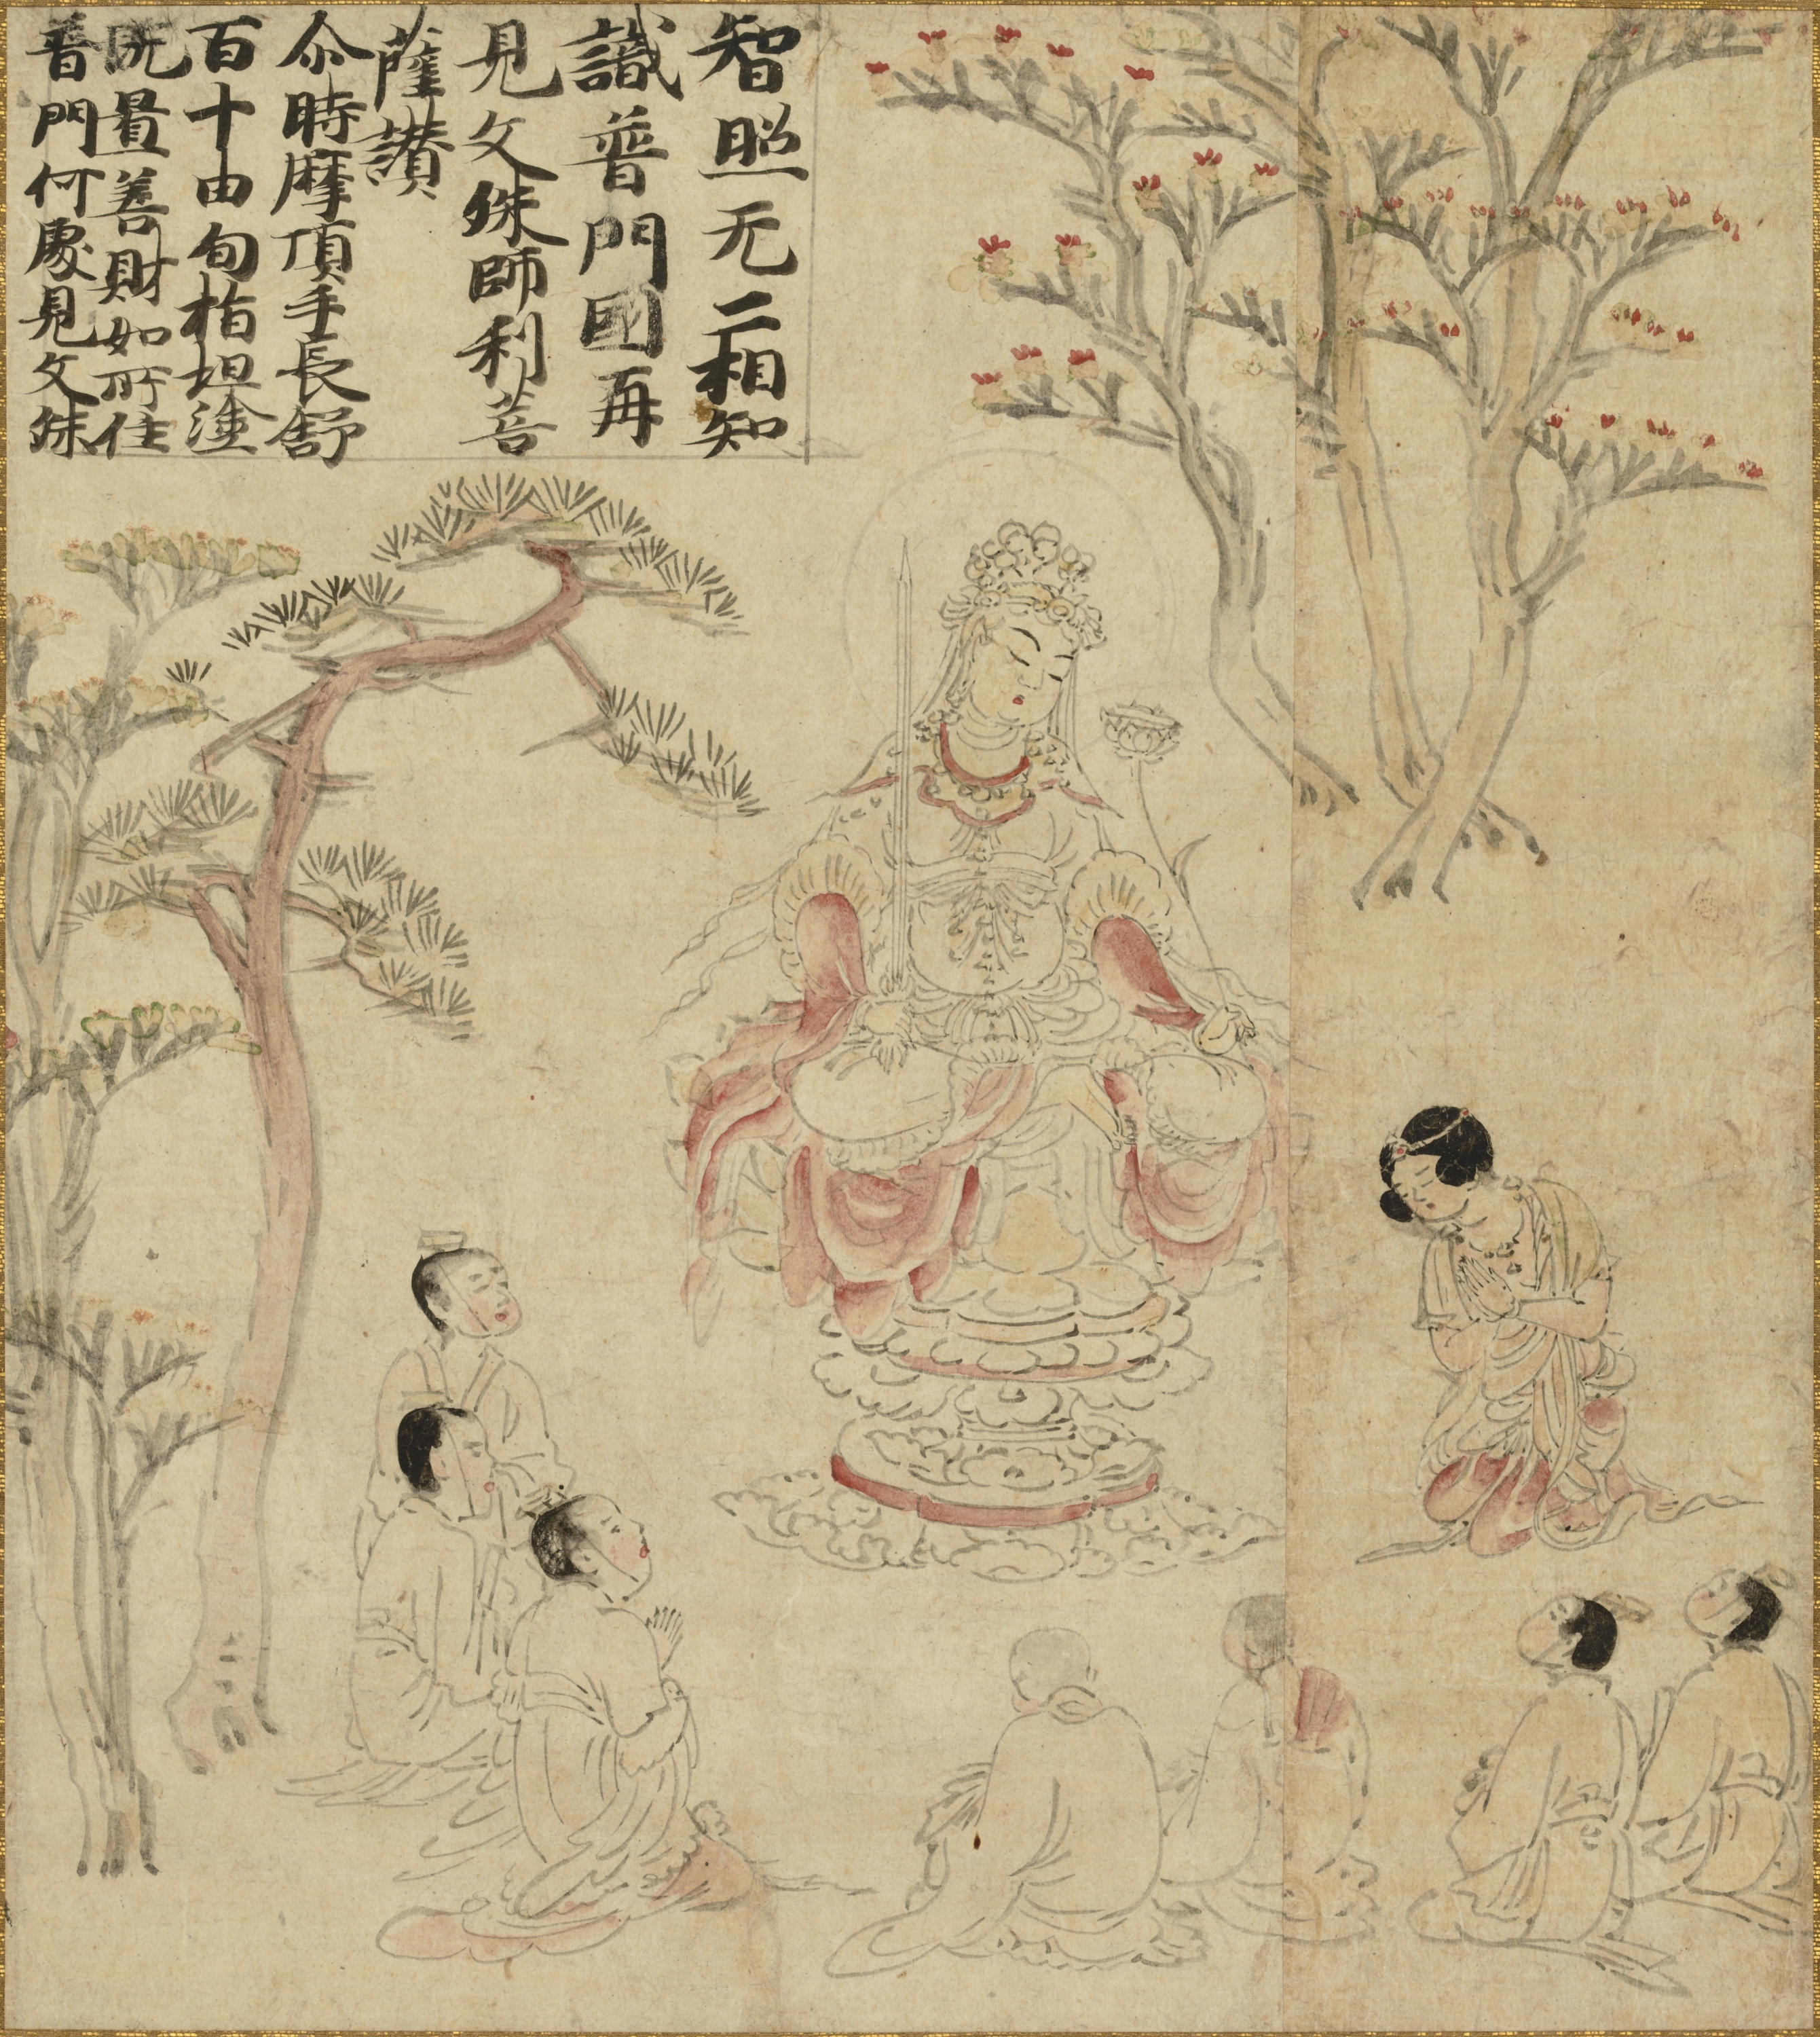 智照无二相知
識普門國再
見文殊師利菩
薩讃
尒時摩頂手長舒
百十由旬指坦塗
既置善財如所住
普門何處見文殊